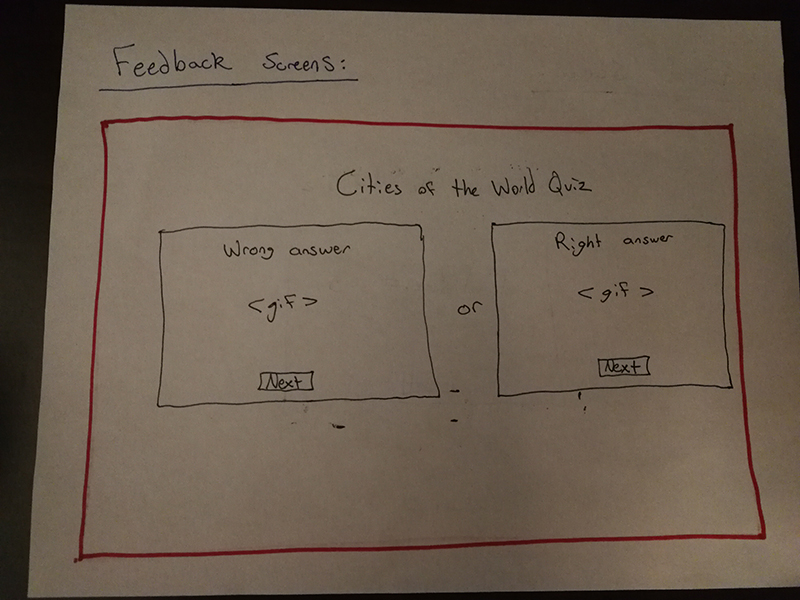 Feedback Screens:
Cities of the World Quiz
Wrong answer
<gif>
Next
or
Right answer
<gif>
Next